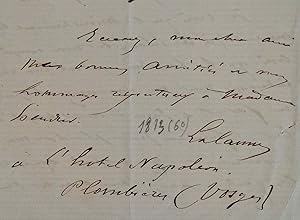 Recevez, mon cher ami
mes bonnes amitiés et mes
hommages respectueux à Madame
1813 (60)
Lalanne
à l'hotel Napoléon.
Plombières (Vosges)